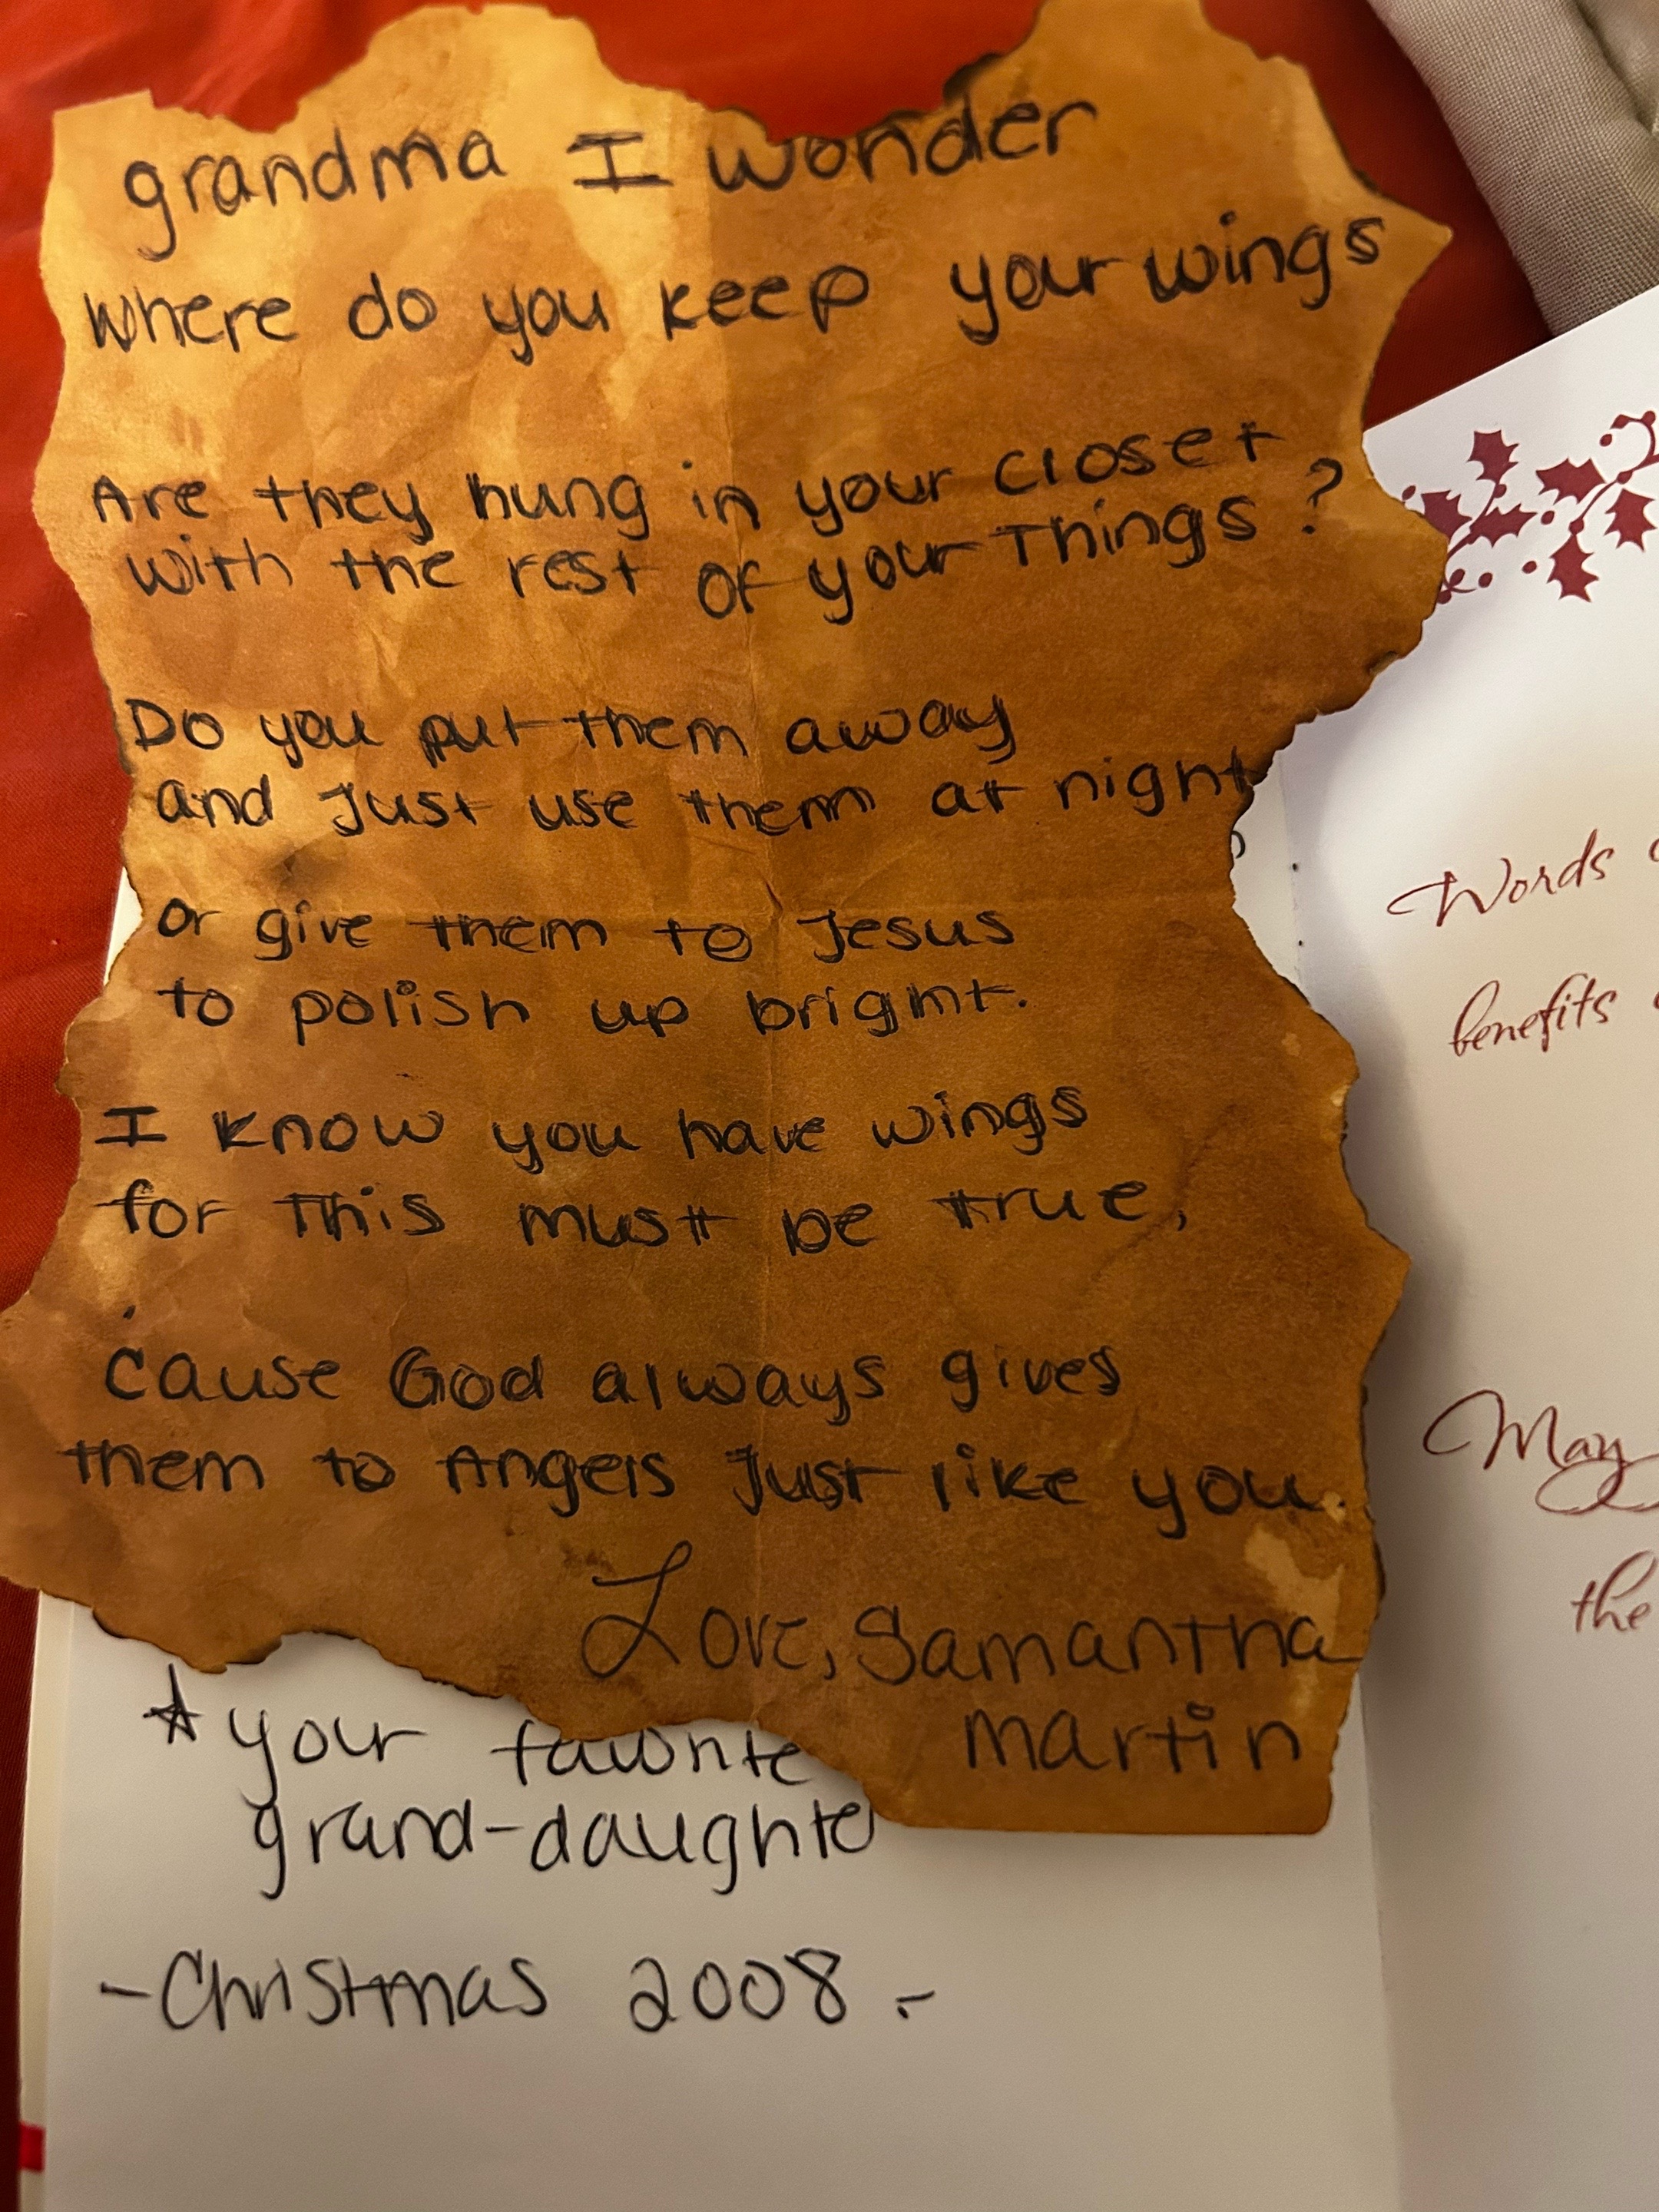 grandma I wonder
where do you keep your wings
Are they hung in your closet
with the rest of your things?
Do you put them away
and just use them at night
or give them to Jesus
to polish up bright.
I know you have wings
for this must be true,
'cause God always gives
them to Angels just like you.
Love, Samantha
martin
your favorite
grand-daughte
-Christmas 2008.-
Words
benefits
May
the